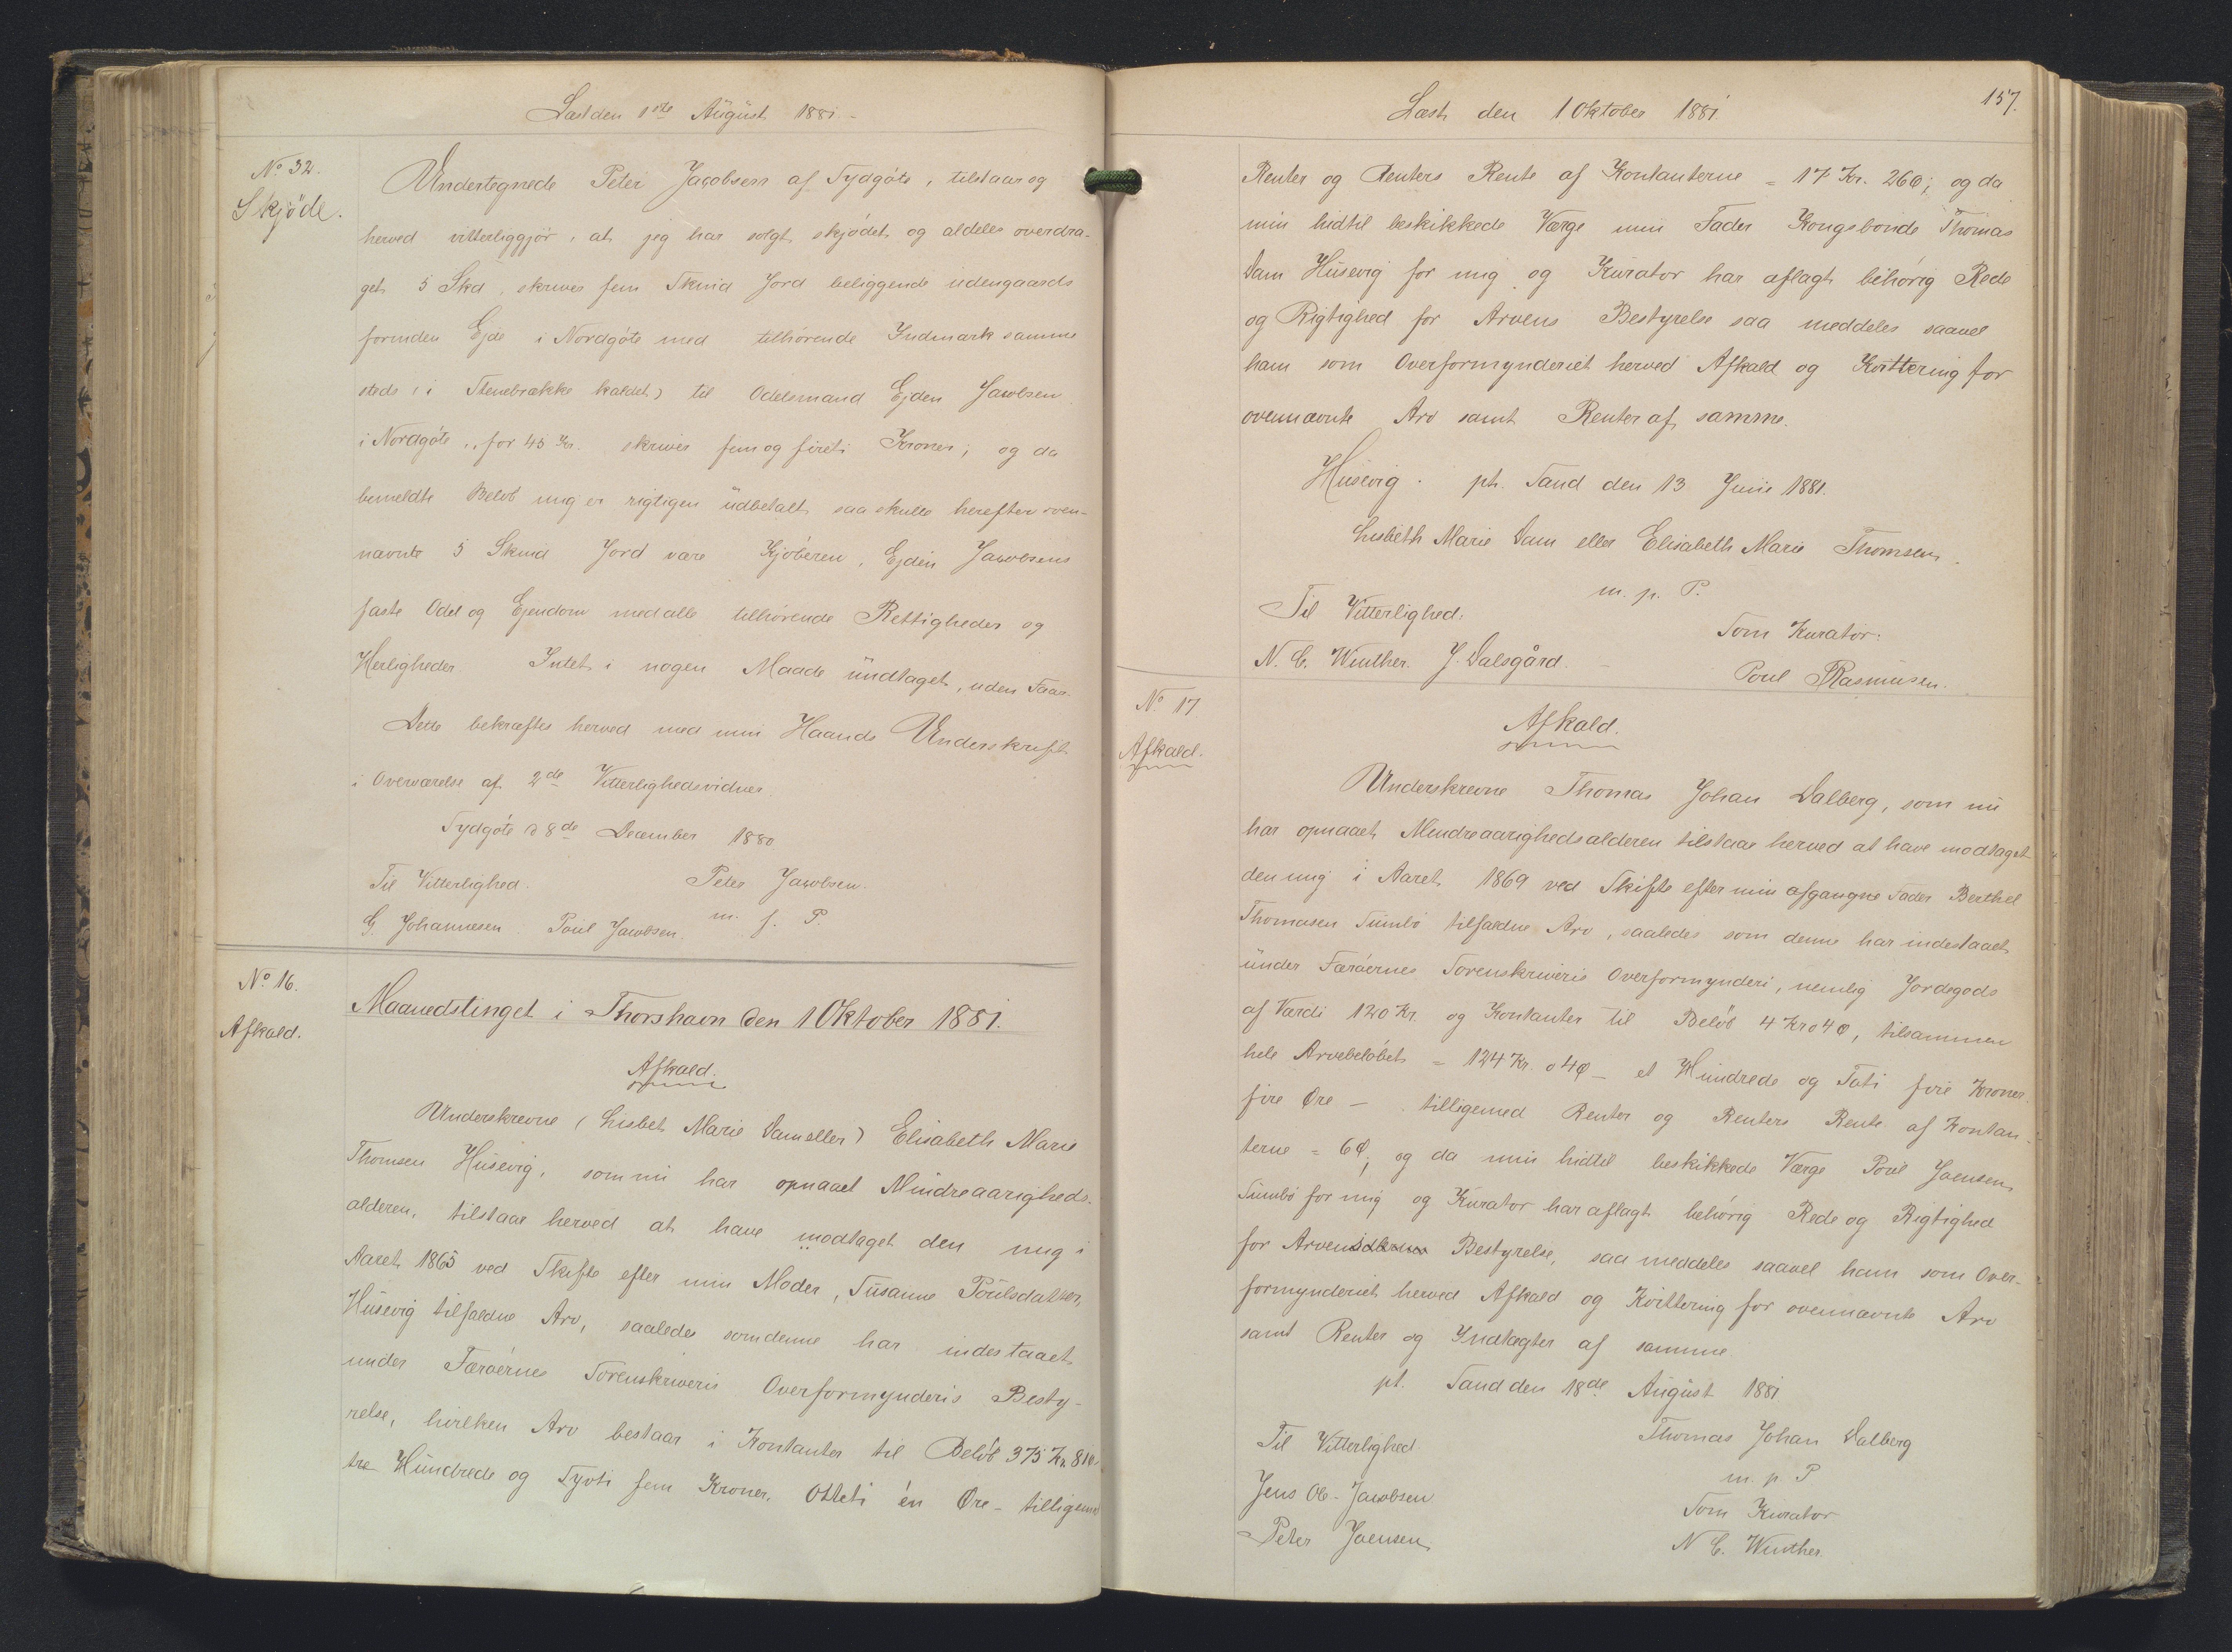 Læst den 1ste August 1881.-
No 32.
Skjöde.
Undertegnede Peter Jacobsen af Sydgöte, tilstaar og
herved vitterliggjör, at jeg har solgt skjödet og aldeles overdra-
get 5 Skd, skriver fem Skind Jord beliggende udengaards
forinden Ejde i Nordgöte med tilhörende Indmark samme
steds (i Stenebrække kaldet) til Odelsmand Ejden Jacobsen
i Nordgöte, for 45 Kr. skriver fem og fireti Kroner; og da
bemeldte Belöb mig er rigtigen udbetalt saa skulle herefter oven-
nævnte 5 Skind Jord være Kjöberen, Ejden Jacobsens
faste Odel og Ejendom med alle tilhörende Rettigheder og
Herligheder Intet i nogen Maade undtaget, uden Faar.
Dette bekræftes herved med min Haands Underskrift
i Overværelse af 2de Vitterlighedsvidner
Sydgöte d 8de December 1880
Til Vitterlighed. Peter Jacobsen.
G. Johannesen. Poul Jacobsen. m. f. P.
No 16.
Afkald.
Maanedstinget i Thorshavn den 1 Oktober 1881.
Afkald.
Underskrevne (Lisbet Marie Dam eller) Elisabeth Marie
Thomsen Husevig, som nu har opnaaet Mindreaarigheds-
alderen, tilstaar herved at have modtaget den mig i
Aaret 1865 ved Skifte efter min Moder, Susanne Poulsdatter,
Husevig tilfaldne Arv, saaledes som denne har indestaaet
under Færøernes Sorenskriveris Overformynderis Besty-
relse, hvilken Arv bestaar i Kontanter til Beløb 375 Kr. 81 Ø.
tre Hundrede og Syvti fem Kroner, Otteti én Øre - tilligemed
Læst den 1 Oktober 1881
157.
Renter og Renters Rente af Kontanterne = 17 Kr. 26 Ø; og da
min hidtil beskikkede Værge min Fader Kongsbonde Thomas
Dam Husevig for mig og Kurator har aflagt behørig Rede
og Rigtighed for Arvens Bestyrelse saa meddeles saavel
ham som Overformynderiet herved Afkald og Kvittering for
ovennævnte Arv samt Renter af samme.
Husevig. pt. Sand den 13 Juni 1881.
Lisbeth Marie Dam eller Elisabeth Marie Thomsen.
m. p. P.
Til Vitterlighed:
Som Kurator:
N. C. Winther. J. Dalsgård.
Poul Rasmusen.
No 17
Afkald.
Afkald.
Underskrevne Thomas Johan Dalberg, som nu
har opnaaet Mindreaarighedsalderen tilstaar herved at have modtaget
den mig i Aaret 1869 ved Skifte efter min afgangne Fader Berthel
Thomasen Sumbø tilfaldne Arv, saaledes som denne har indestaaet
under Færøernes Sorenskriveris Overformynderi, nemlig Jordegods
af Værdi 120 Kr. og Kontanter til Beløb 4 Kr 04 Ø, tilsammen
hele Arvebeløbet = 124 Kr. 04 Ø - et Hundrede og Tøti fire Kroner
fire Øre - tilligemed Renter og Renters Rente af Kontan-
terne = 6 Ø; og da min hidtil beskikkede Værge Poul Joensen
Sumbø for mig og Kurator har aflagt behørig Rede og Rigtighed
for Arvens Bestyrelse, saa meddeles saavel ham som Over-
formynderiet herved Afkald og Kvittering for ovennævnte Arv
samt Renter og Indtægter af samme
pt. Sand den 18de August 1881.
Til Vitterlighed
Thomas Johan Dalberg
m. p P
Jens Ol. Jacobsen
Som Kurator
Peter Joensen
N C. Winther.